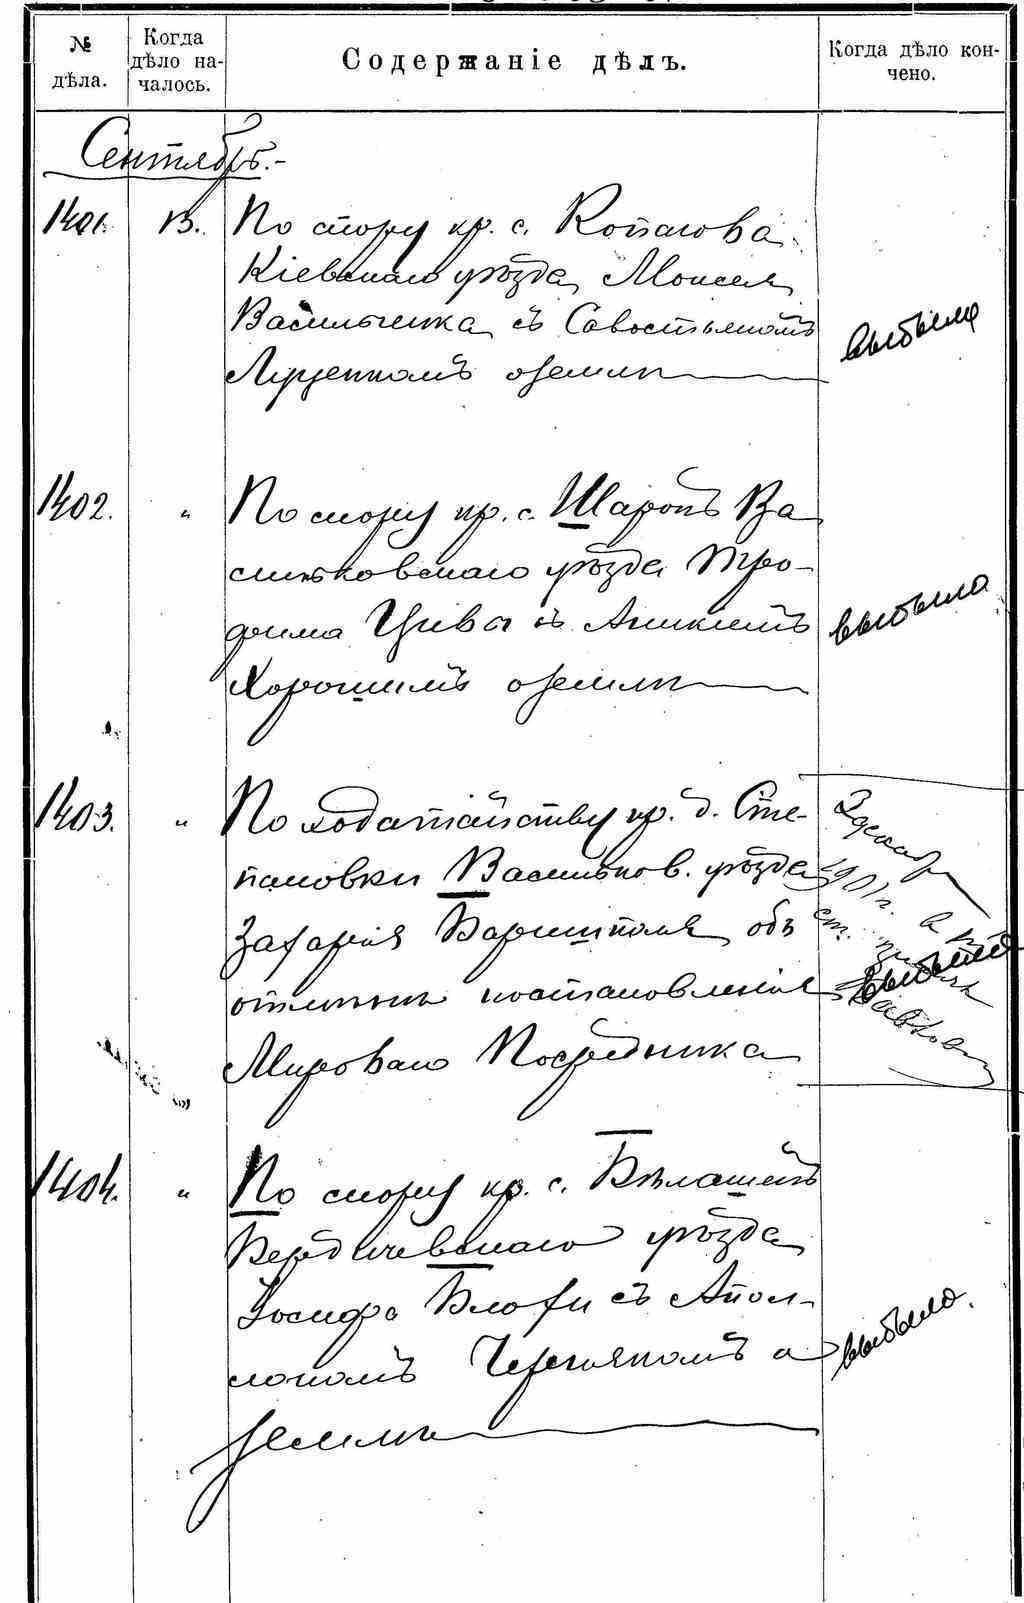 № дѣла.
Когда дѣло на-
чалось.
Содержаніе дѣлъ.
Когда дѣло кон-
чено.
Сентябрь.-
1401. 13. По спору кр. с. Копачова
Кіевскаго уѣзда Моисея
Васильченка съ Савостьяномъ
Луценкомъ о землѣ
выбыла
1402. " По спору кр. с. Шарокъ Ва
сильковскаго уѣзда Тро-
фима Цивы съ Аникіемъ
Хорошимъ о землѣ
выбыло
1403. " По ходатайству кр. д. Сте-
пановки Васильков. уѣзда
Захарія Баришполя объ
отмѣнѣ постановленія
Мирового Посредника
декабр
1901 г. в
ст.
выбыло
1404. " По спору кр. с. Бѣлашекъ
Бердичевскаго уѣзда
Іосифа Блохи съ Апол-
лономъ Червякомъ о
землѣ
выбыло.